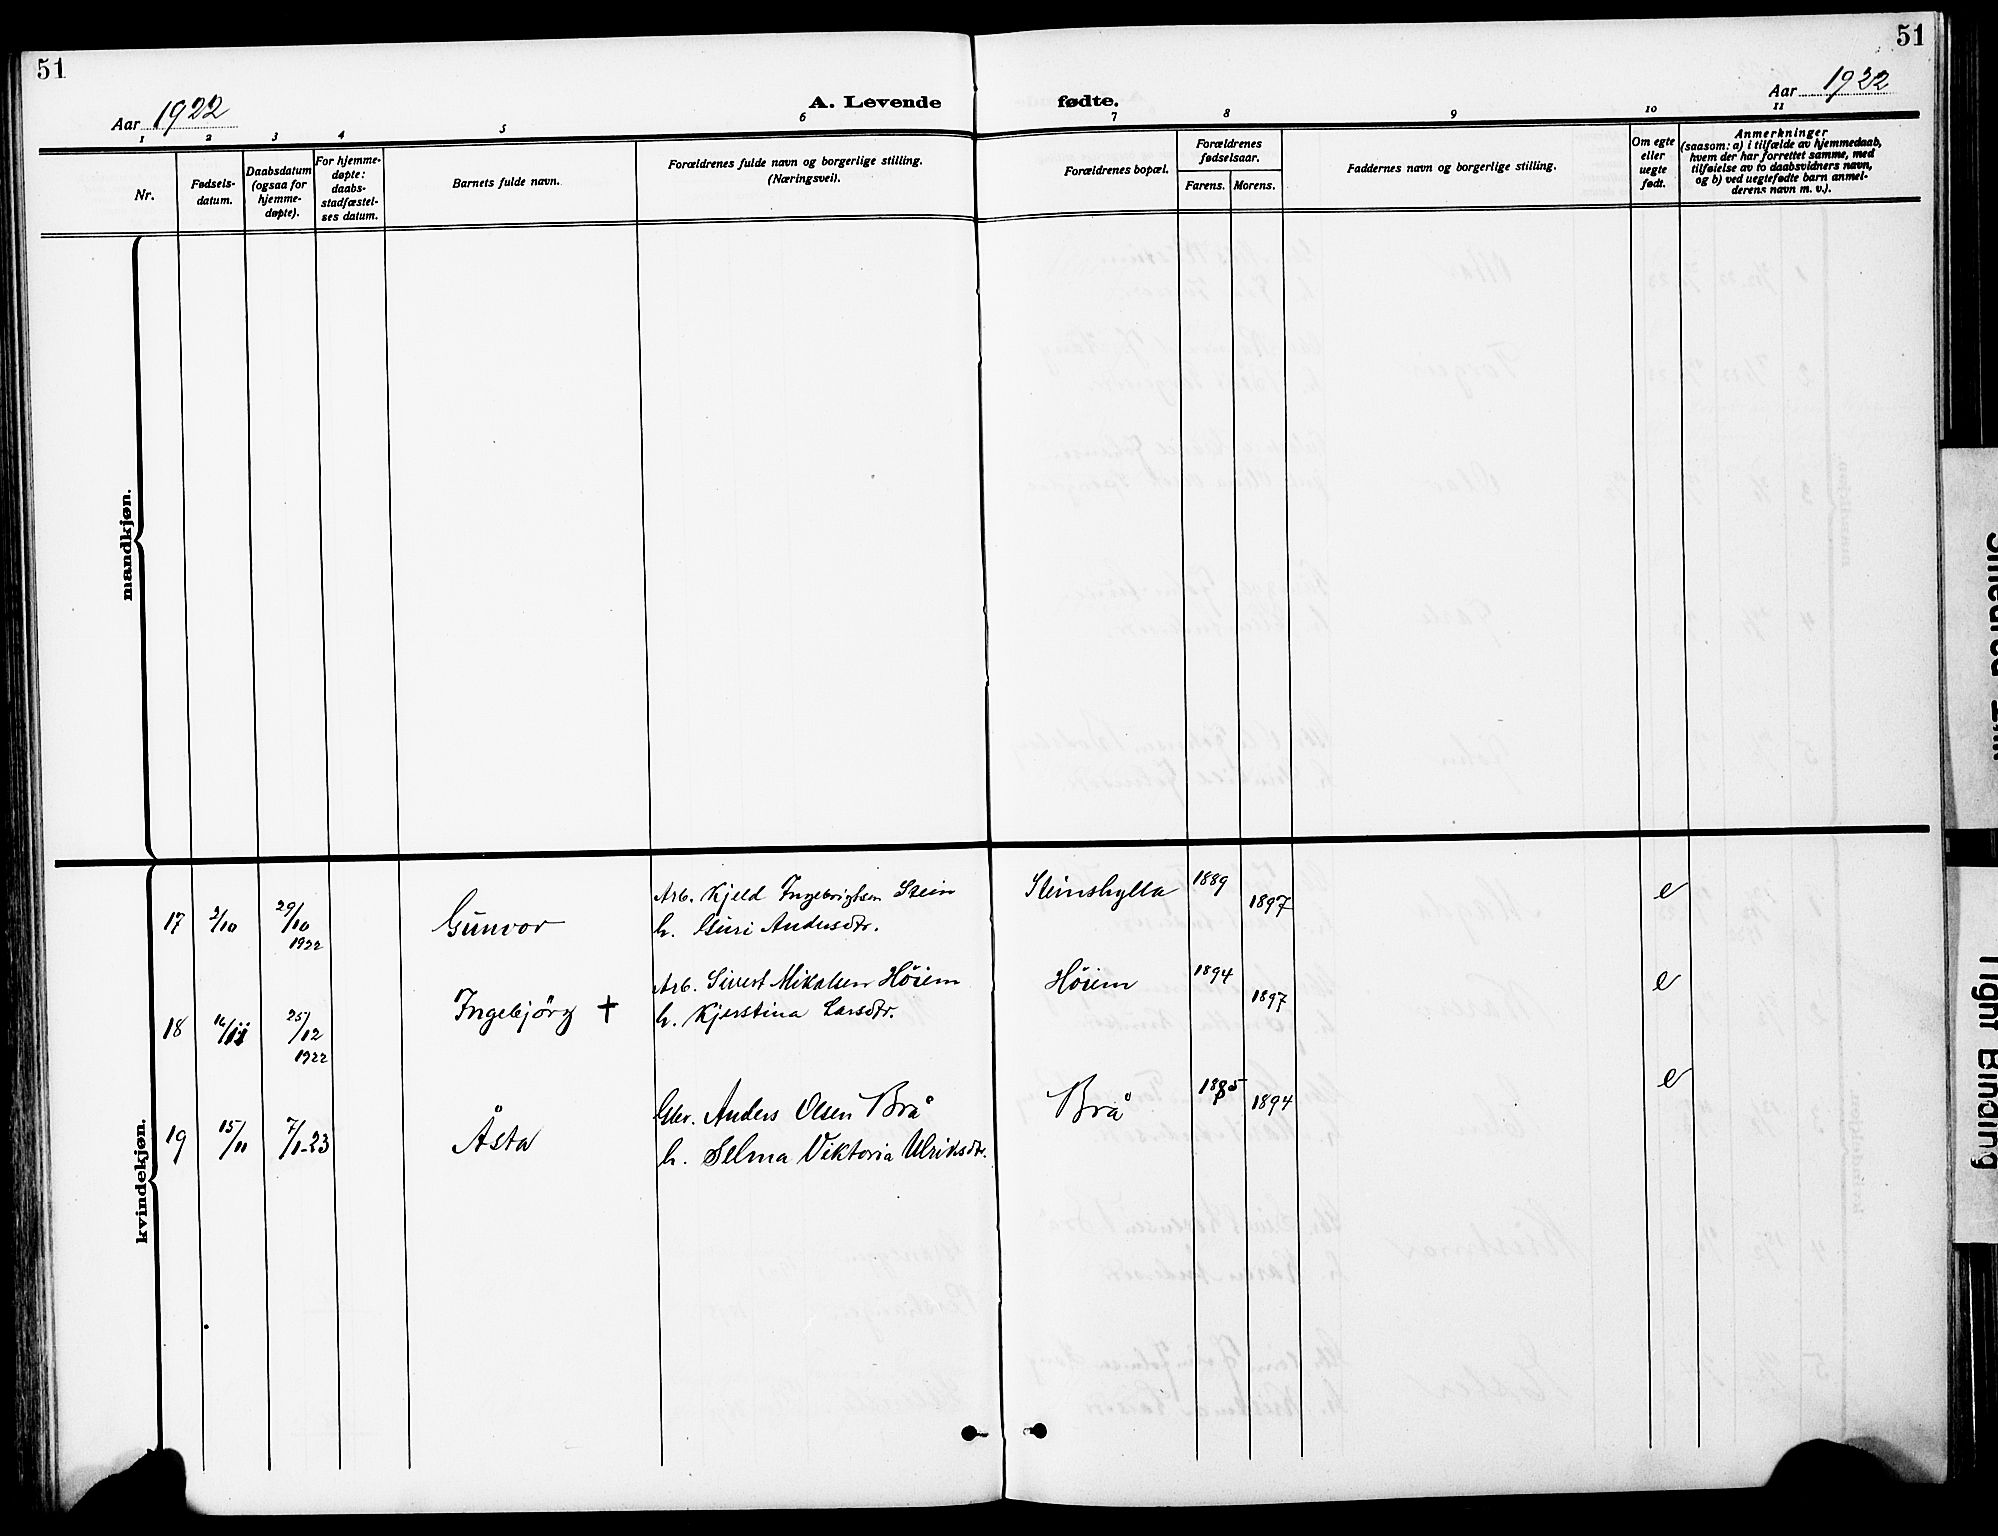 51
51
Aar 1922
A. Levende
fødte.
Aar 1922
1
2
3
4
5
6
7
8
9
10
11
Nr.
Fødsels-
datum.
Daabsdatum
(ogsaa for
hjemme-
døpte).
For hjemme-
døpte:
daabs-
stadfæstel-
ses datum.
Barnets fulde navn.
Forældrenes fulde navn og borgerlige stilling.
(Næringsvei).
Forældrenes bopæl.
Forældrenes
fødselsaar.
Farens.
Morens.
Faddernes navn og borgerlige stilling.
Om egte
eller
uegte
født.
Anmerkninger
(saasom: a) i tilfælde av hjemmedaab,
hvem der har forrettet samme, med
tilføielse av to daabsvidners navn,
og b) ved uegtefødte barn anmel-
derens navn m. v.).
mandkjøn.
kvindekjøn.
17 2/10 29/10 1922 Gunvor
Arb. Kjeld Ingebrigtsen Stein
h. Guri Andersdtr.
Steinshylla 1889 1897 e
18 16/11 25/12 1922 Ingebjörg †
Arb. Sivert Mikalsen Höiem
h. Kjerstina Larsdtr.
Höiem 1894 1897 e
19 15/11 7/1-23 Åsta
Gbr. Anders Olsen Brå
h. Selma Viktoria Ulriksdtr.
Brå 1885 1894 e
Tight Binding